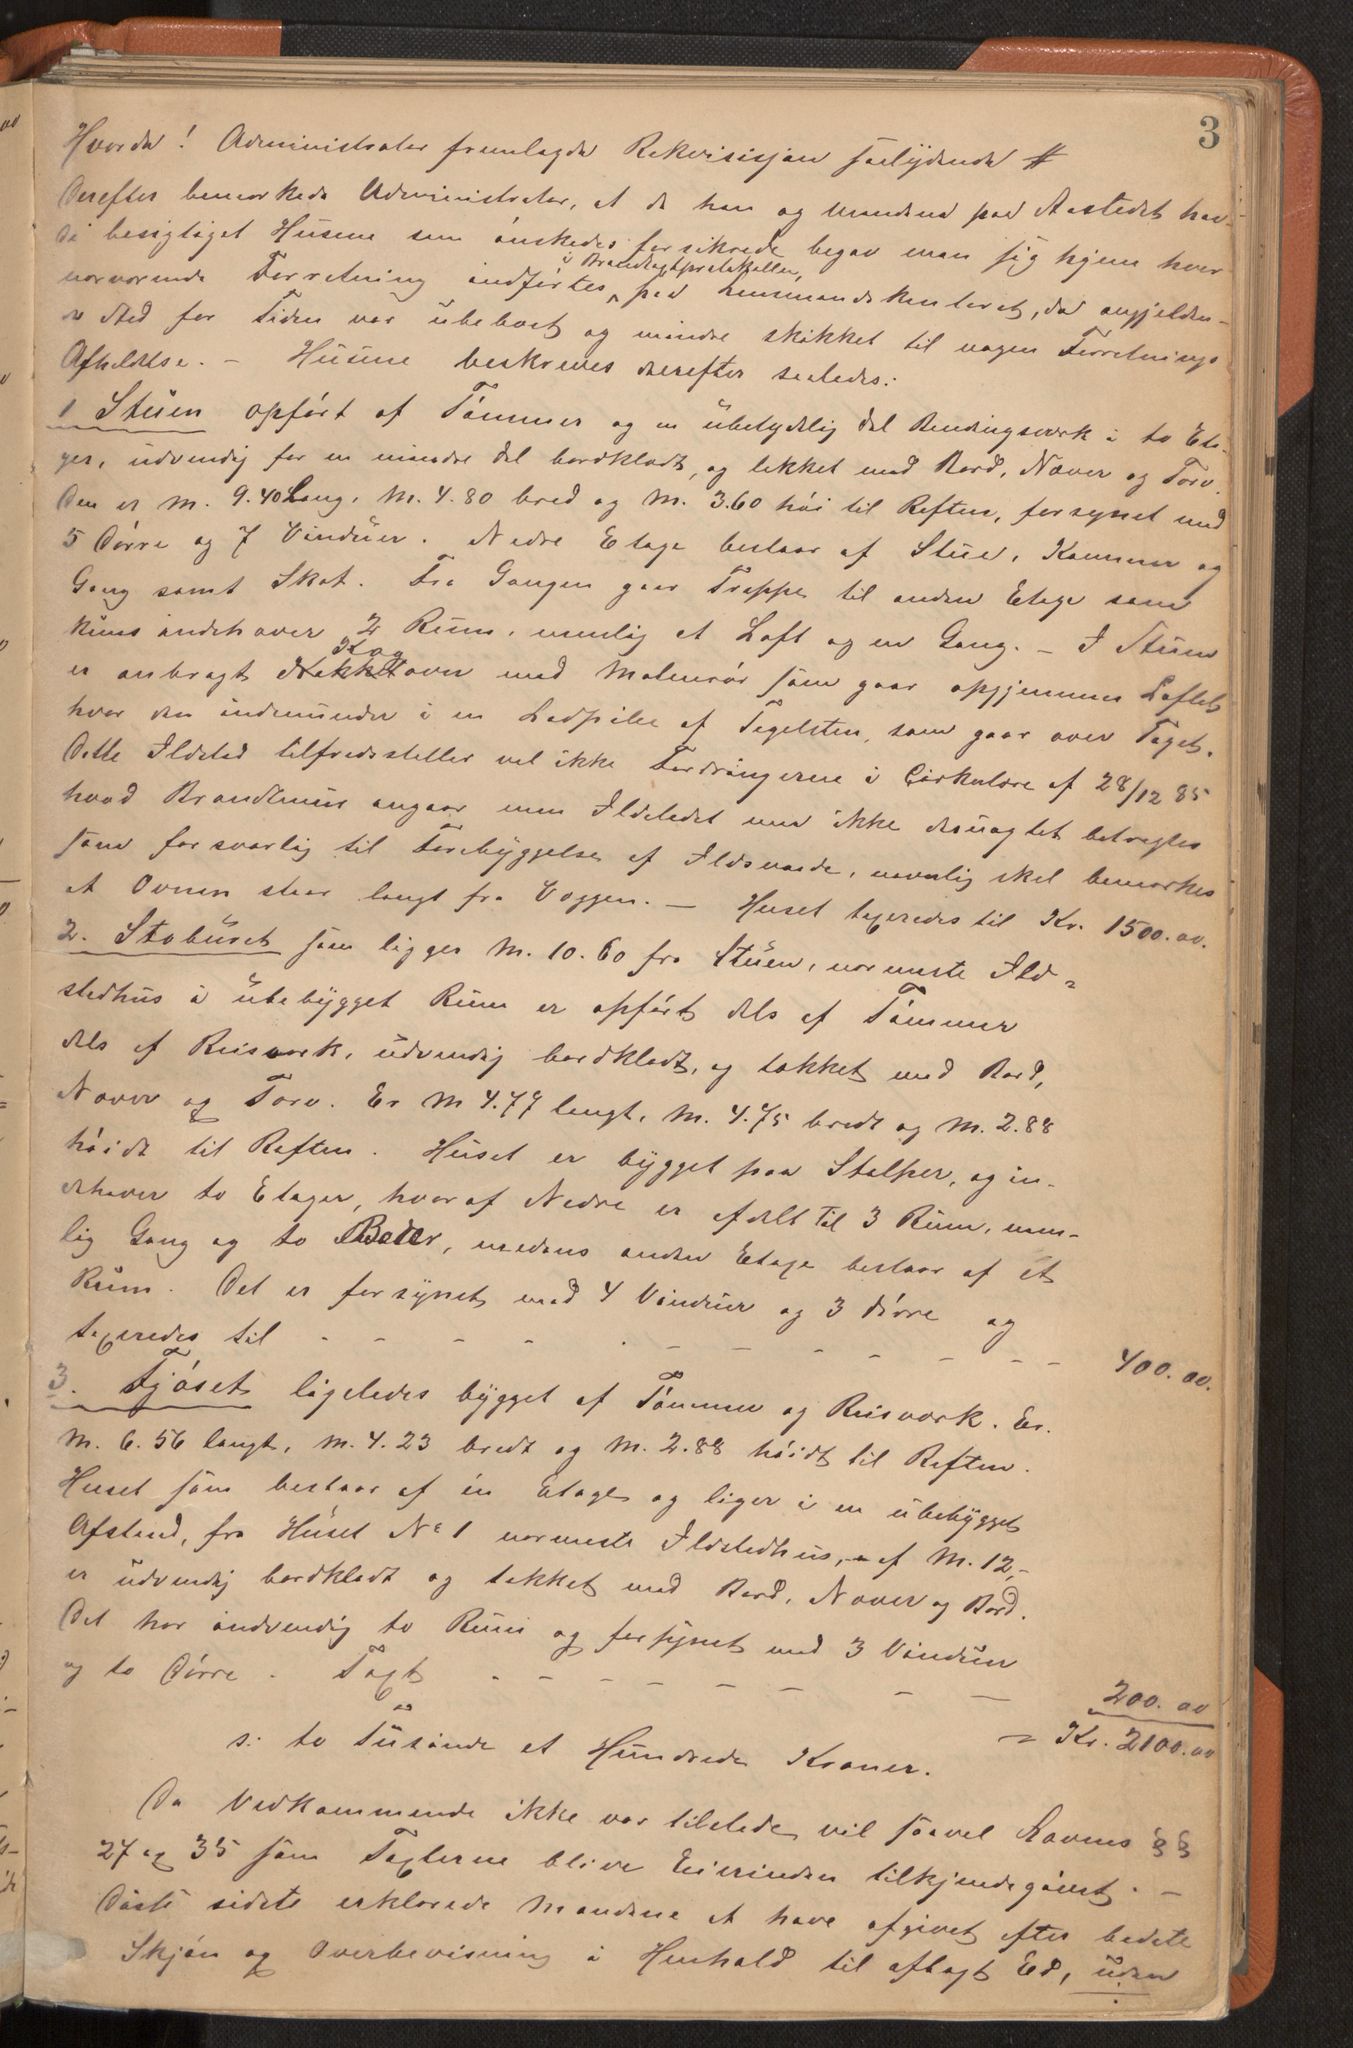 3
Hvorda! Administrator fremlagde Rekvisisjon saalydende #
Derefter bemærkede Administrator, at da han og mændene paa Aastedet hav-
de besigtiget Husene som ønskedes forsikrede begav man sig hjem hvor
nærværende Forretning indførtes i Brandtaxtprotokollen, paa Lensmandskontoret, da angjelden-
de Sted for Tiden var ubeboet og mindre skikket til nogen Forretnings
Afholdelse. - Husene beskreves derefter saaledes:
1 Stuen opført af Tømmer og en übetydelig Del Bindingsværk i to Eta-
ger, udvendig for en mindre Del bordklædt, og tækket med Bord, Næver og Torv.
Den er M. 9.40 Lang, M. 4.80 bred og M. 3.60 høi til Raften, forsynet med
5 Dørre og 7 Vinduer. Nedre Etage bestaar af Stue, Kammer og
Gang samt Skot. Fra Gangen gaar Trappe til anden Etage som
kuns indehaver 2 Rum, nemlig et Loft og en Gang. - I Stuen
er anbragt Kogeovn med Malmrør som gaar opgjennem Loftet
hvor den indmunder i en Ledpibe af Tegelsten, som gaar over Taget.
Dette Ildsted tilfredsstiller vel ikke Fordringerne i Cirkulære af 28/12 85
hvad Brandmur angaar men Ildstedet maa ikke desuagtet betragtes
som forsvarlig til Forebyggelse af Ildsvaade, navnlig skal bemærkes
at Ovnen staar langt fra Væggen. - Huset taxeredes til Kr. 1500.00.
2. Stabüret som ligger M. 10.60 fra Stüen, nærmeste Ild-
stedhus i übebygget Rum er opført dels af Tømmer
dels af Reisværk, udvendig bordklædt, og tækket med Bord,
Næver og Torv. Er M 4.77 langt, M. 4.75 bredt og M. 2.88
høidt til Raften. Huset er bygget paa Stolper, og in-
dehaver to Etager, hvoraf Nedre er afdelt til 3 Rum, nem-
lig Gang og to Boder, medens anden Etage bestaar af et
Rum. Det er forsynet med 4 Vinduer og 3 Dørre og
taxeredes til - - - - - - - - - - - 400.00.
3. Fjøset ligeledes bygget af Tømmer og Reisværk. Er.
M. 6.56 langt, M. 4.23 bredt og M. 2.88 høidt til Raften.
Huset som bestaar af én Etage og liger i en übebygget
Afstand, fra Huset No 1 nærmeste Ildstedhus, - af M. 12,-
er udvendig bordklædt og tækket med Bord, Næver og Bord.
Det har indvendig to Rum og forsynet med 3 Vinduer
og to Dørre. Taxt - - - - - - - - 200.00
s: to Tüsinde et Hundrede Kroner. = Kr. 2100.00
Da Vedkommende ikke var tilstede, vil saavel Lovens §§
27 og 35 som Taxterne blive Eierinden tilkjendegivet. -
sidste erklærede Mændene at have afgivet efter bedste
Skjøn og Overbevisning i Henhold til aflagt Ed, uden